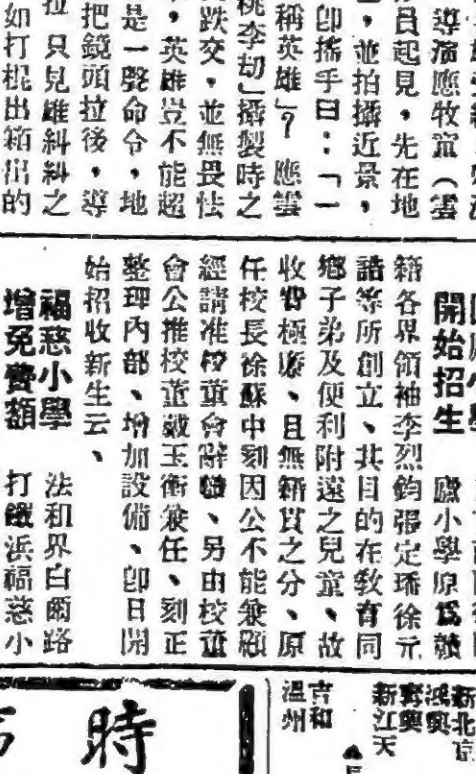 導演應牧甯（雲
員起見，先在地
，並拍攝近景，
卽搖手曰：「一
稱英雄」？應雲
桃李刼」攝製時之
跌交，並無畏怯
，英雄豈不能超
是一聲命令，地
把鏡頭拉後，導
拉只見雄糾糾之
如打棍出箱出的
開始招生
小學原爲贛
籍各界領袖李烈鈞張定璠徐元
誥等所創立、其目的在敎育同
鄉子弟及便利附遠之兒童、故
收費極廉、且無籍貫之分、原
任校長徐蘇中刻因公不能兼顧
經請准校董會辭職、另由校董
會公推校董戴玉衡兼任、刻正
整理內部、增加設備、卽日開
始招收新生云、
福慈小學
增免費額
法和界白爾路
打鐵浜福慈小
新北京
鴻興
寧興
新江天
吉和
溫州
時